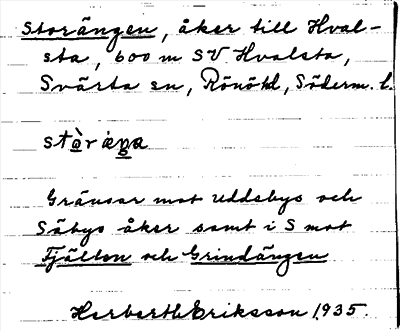 Storängen, åker till Hval-
sta, 600 m SV Hvalsta,
Svärta sn, Rönö hd, Söderm. l.
Gränsar mot Uddebys och
Säbys åker samt i S mot
Fjälton och Grindängen
Herbert Eriksson 1935.